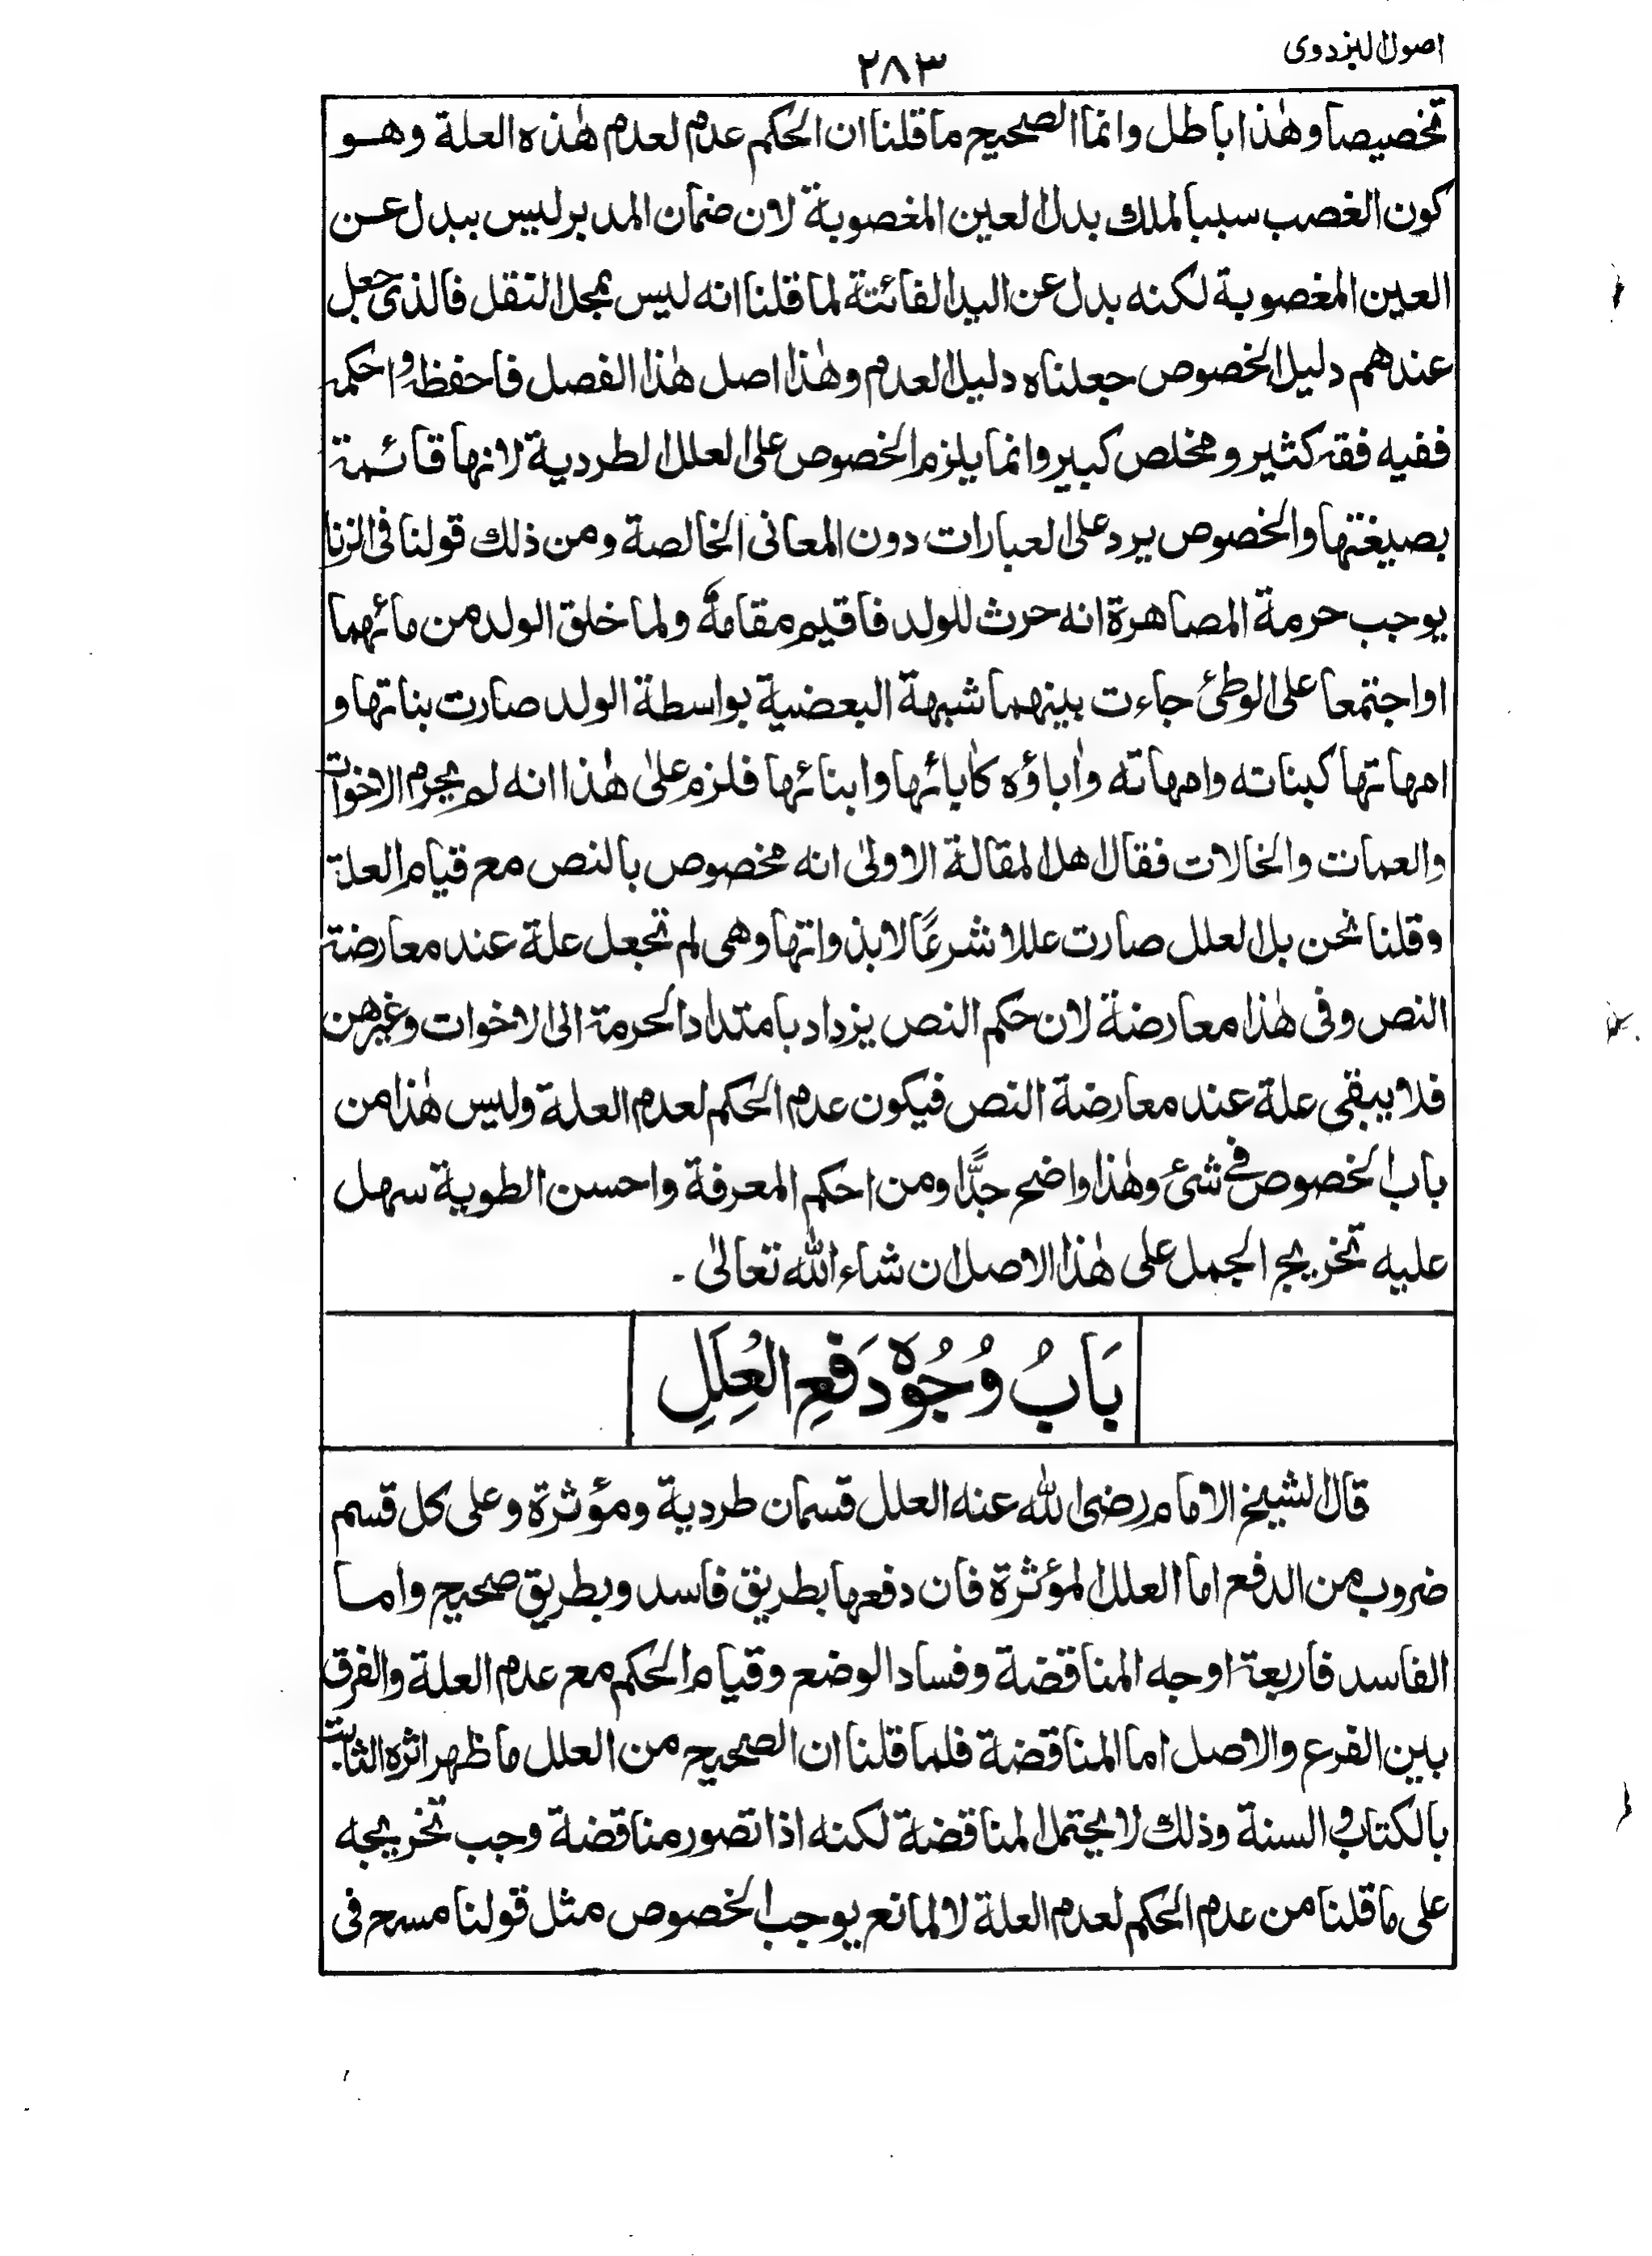 اصول البزدوی
۲۸۳
تخصيصا وهٰذا باطل وانما الصحيح ما قلنا ان الحكم عدم لعدم هٰذه العلة وهو
كون الغصب سببا لملك بدل العين المغصوبة لان ضمان المدبر ليس ببدل عن
العين المغصوبة لكنه بدل عن اليد الفائتة لما قلنا انه ليس بمحل النقل فالذى جعل
عندهم دليل الخصوص جعلناه دليل العدم وهٰذا اصل هٰذا الفصل فاحفظه واحكمه
ففيه فقه كثير ومخلص كبير وانما يلزم الخصوص على العلل الطردية لانها قائمة
بصيغتها والخصوص يرد على العبارات دون المعانى الخالصة ومن ذلك قولنا فى الزنا
يوجب حرمة المصاهرة انه حرث للولد فاقيم مقامهٗ ولما خلق الولد من مائهما
او اجتمعا على الوطئ جاءت بينهما شبهة البعضية بواسطة الولد صارت بناتها و
امهاتها كبناته وامهاته واٰباؤه كاٰبائها وابنائها فلزم علىٰ هٰذا انه لم يحرم الاخوات
والعمات والخالات فقال اهل المقالة الاولىٰ انه مخصوص بالنص مع قيام العلة
وقلنا نحن بل العلل صارت عللا شرعًا لا بذواتها وهى لم تجعل علة عند معارضة
النص وفى هٰذا معارضة لان حكم النص يزداد بامتداد الحرمة الى الاخوات وغيرهن
فلا يبقى علة عند معارضة النص فيكون عدم الحكم لعدم العلة وليس هٰذا من
باب الخصوص فى شئ وهٰذا واضح جدًّا ومن احكم المعرفة واحسن الطوية سهل
عليه تخريج الجمل على هٰذا الاصل ان شاء الله تعالىٰ ۔
بَابُ وُجُوْهِ دَفعِ العِلَلِ
قال الشيخ الامام رضى الله عنه العلل قسمان طردية ومؤثرة وعلى كل قسم
ضروب من الدفع اما العلل المؤثرة فان دفعها بطريق فاسد وبطريق صحيح واما
الفاسد فاربعة اوجه المناقضة وفساد الوضع وقيام الحكم مع عدم العلة والفرق
بين الفرع والاصل اما المناقضة فلما قلنا ان الصحيح من العلل ما ظهر اثره الثابت
بالكتاب والسنة وذلك لا يحتمل المناقضة لكنه اذا تصور مناقضة وجب تخريجه
على ما قلنا من عدم الحكم لعدم العلة لا لمانع يوجب الخصوص مثل قولنا مسح فى